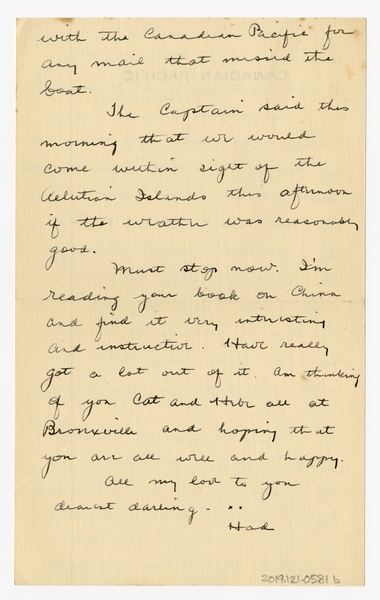 with the Canadian Pacific for
any mail that missed the
boat.
The Captain said this
morning that we would
come within sight of the
Aelutian Islands this afternoon
if the weather was reasonably
good.
Must stop now. I'm
reading your book on China
and find it very intersting
and instructive. Have really
got a lot out of it. Am thinking
of you Cat and Hebe all at
Bronxville and hoping that
you are all well and happy.
All my love to you
dearest darling. ..
Had
2019.121.0581b